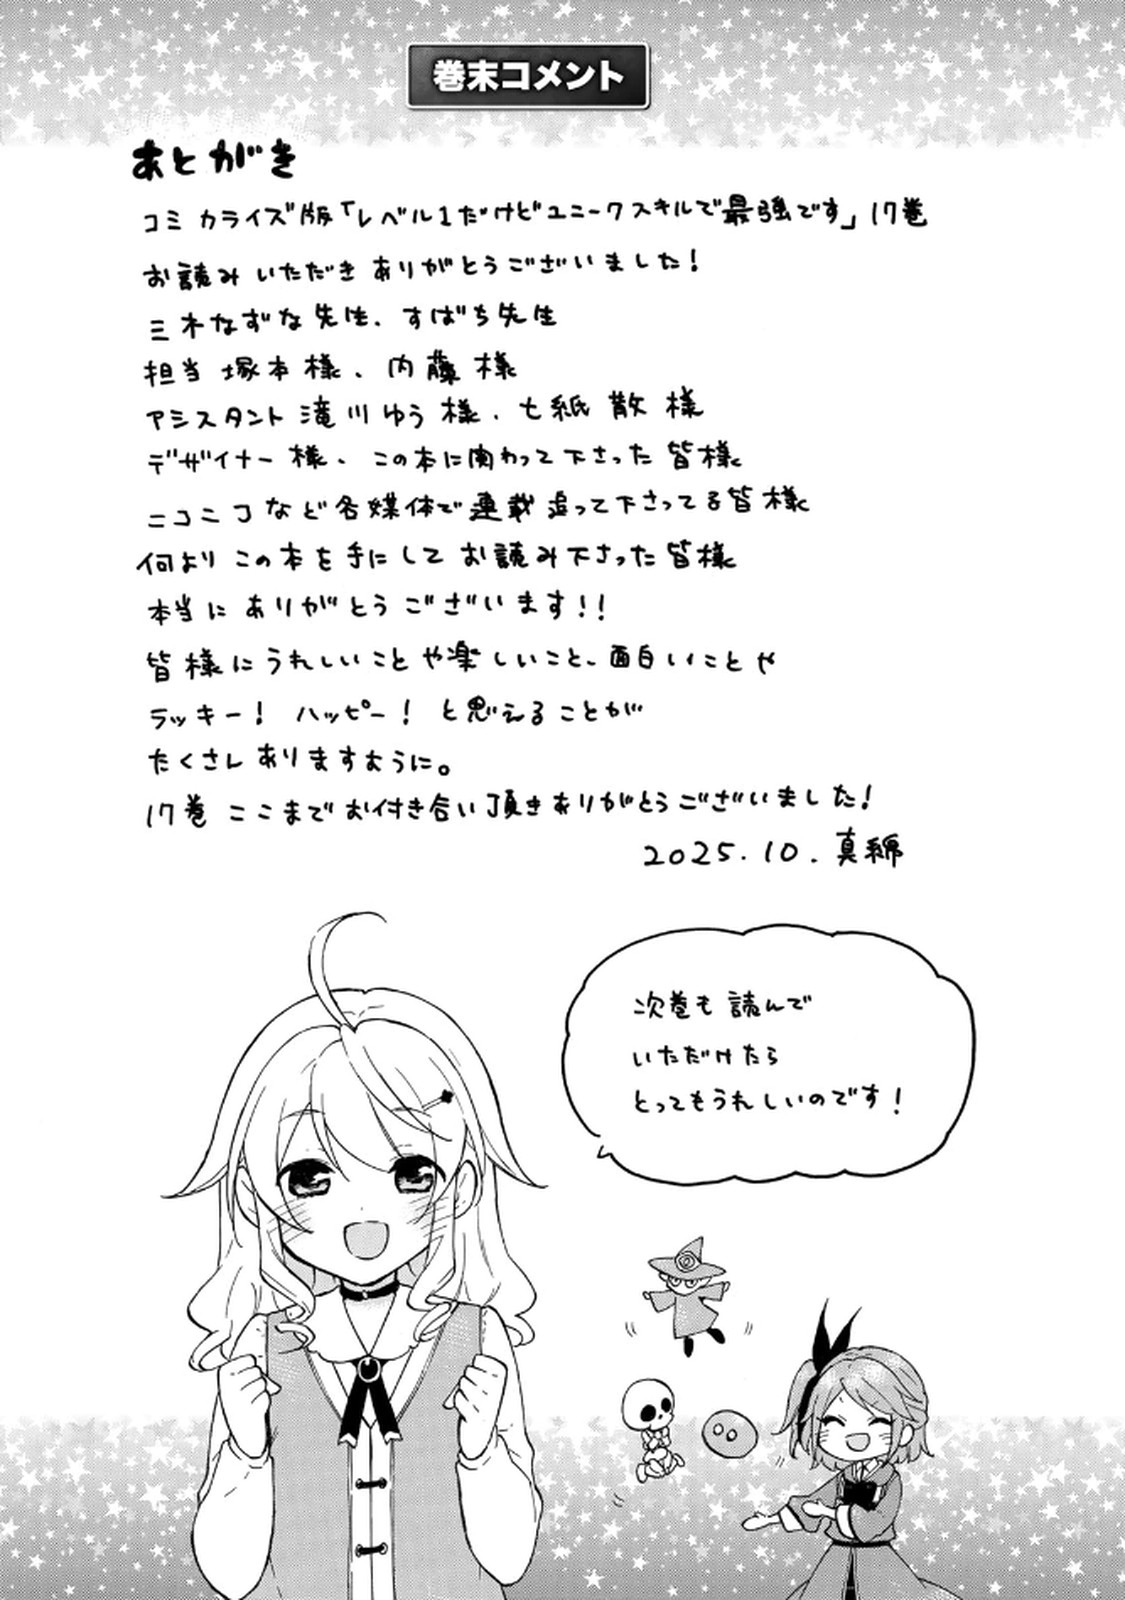 巻末コメント
あとがき
コミカライズ版「レベル1だけどユニークスキルで最強です」17巻
お読みいただきありがとうございました!
三木なずな先生、すばち先生
担当 塚本様、内藤様
アシスタント 滝川ゆう様、七紙 散様
デザイナー様、この本に関わって下さった皆様
ニコニコなど各媒体で連載追って下さってる皆様
何よりこの本を手にしてお読み下さった皆様
本当にありがとうございます!!
皆様にうれしいことや楽しいこと、面白いことや
ラッキー! ハッピー! と思えることが
たくさんありますように。
17巻 ここまでお付き合い頂きありがとうございました!
2025.10.真綿
次巻も読んで
いただけたら
とってもうれしいのです!